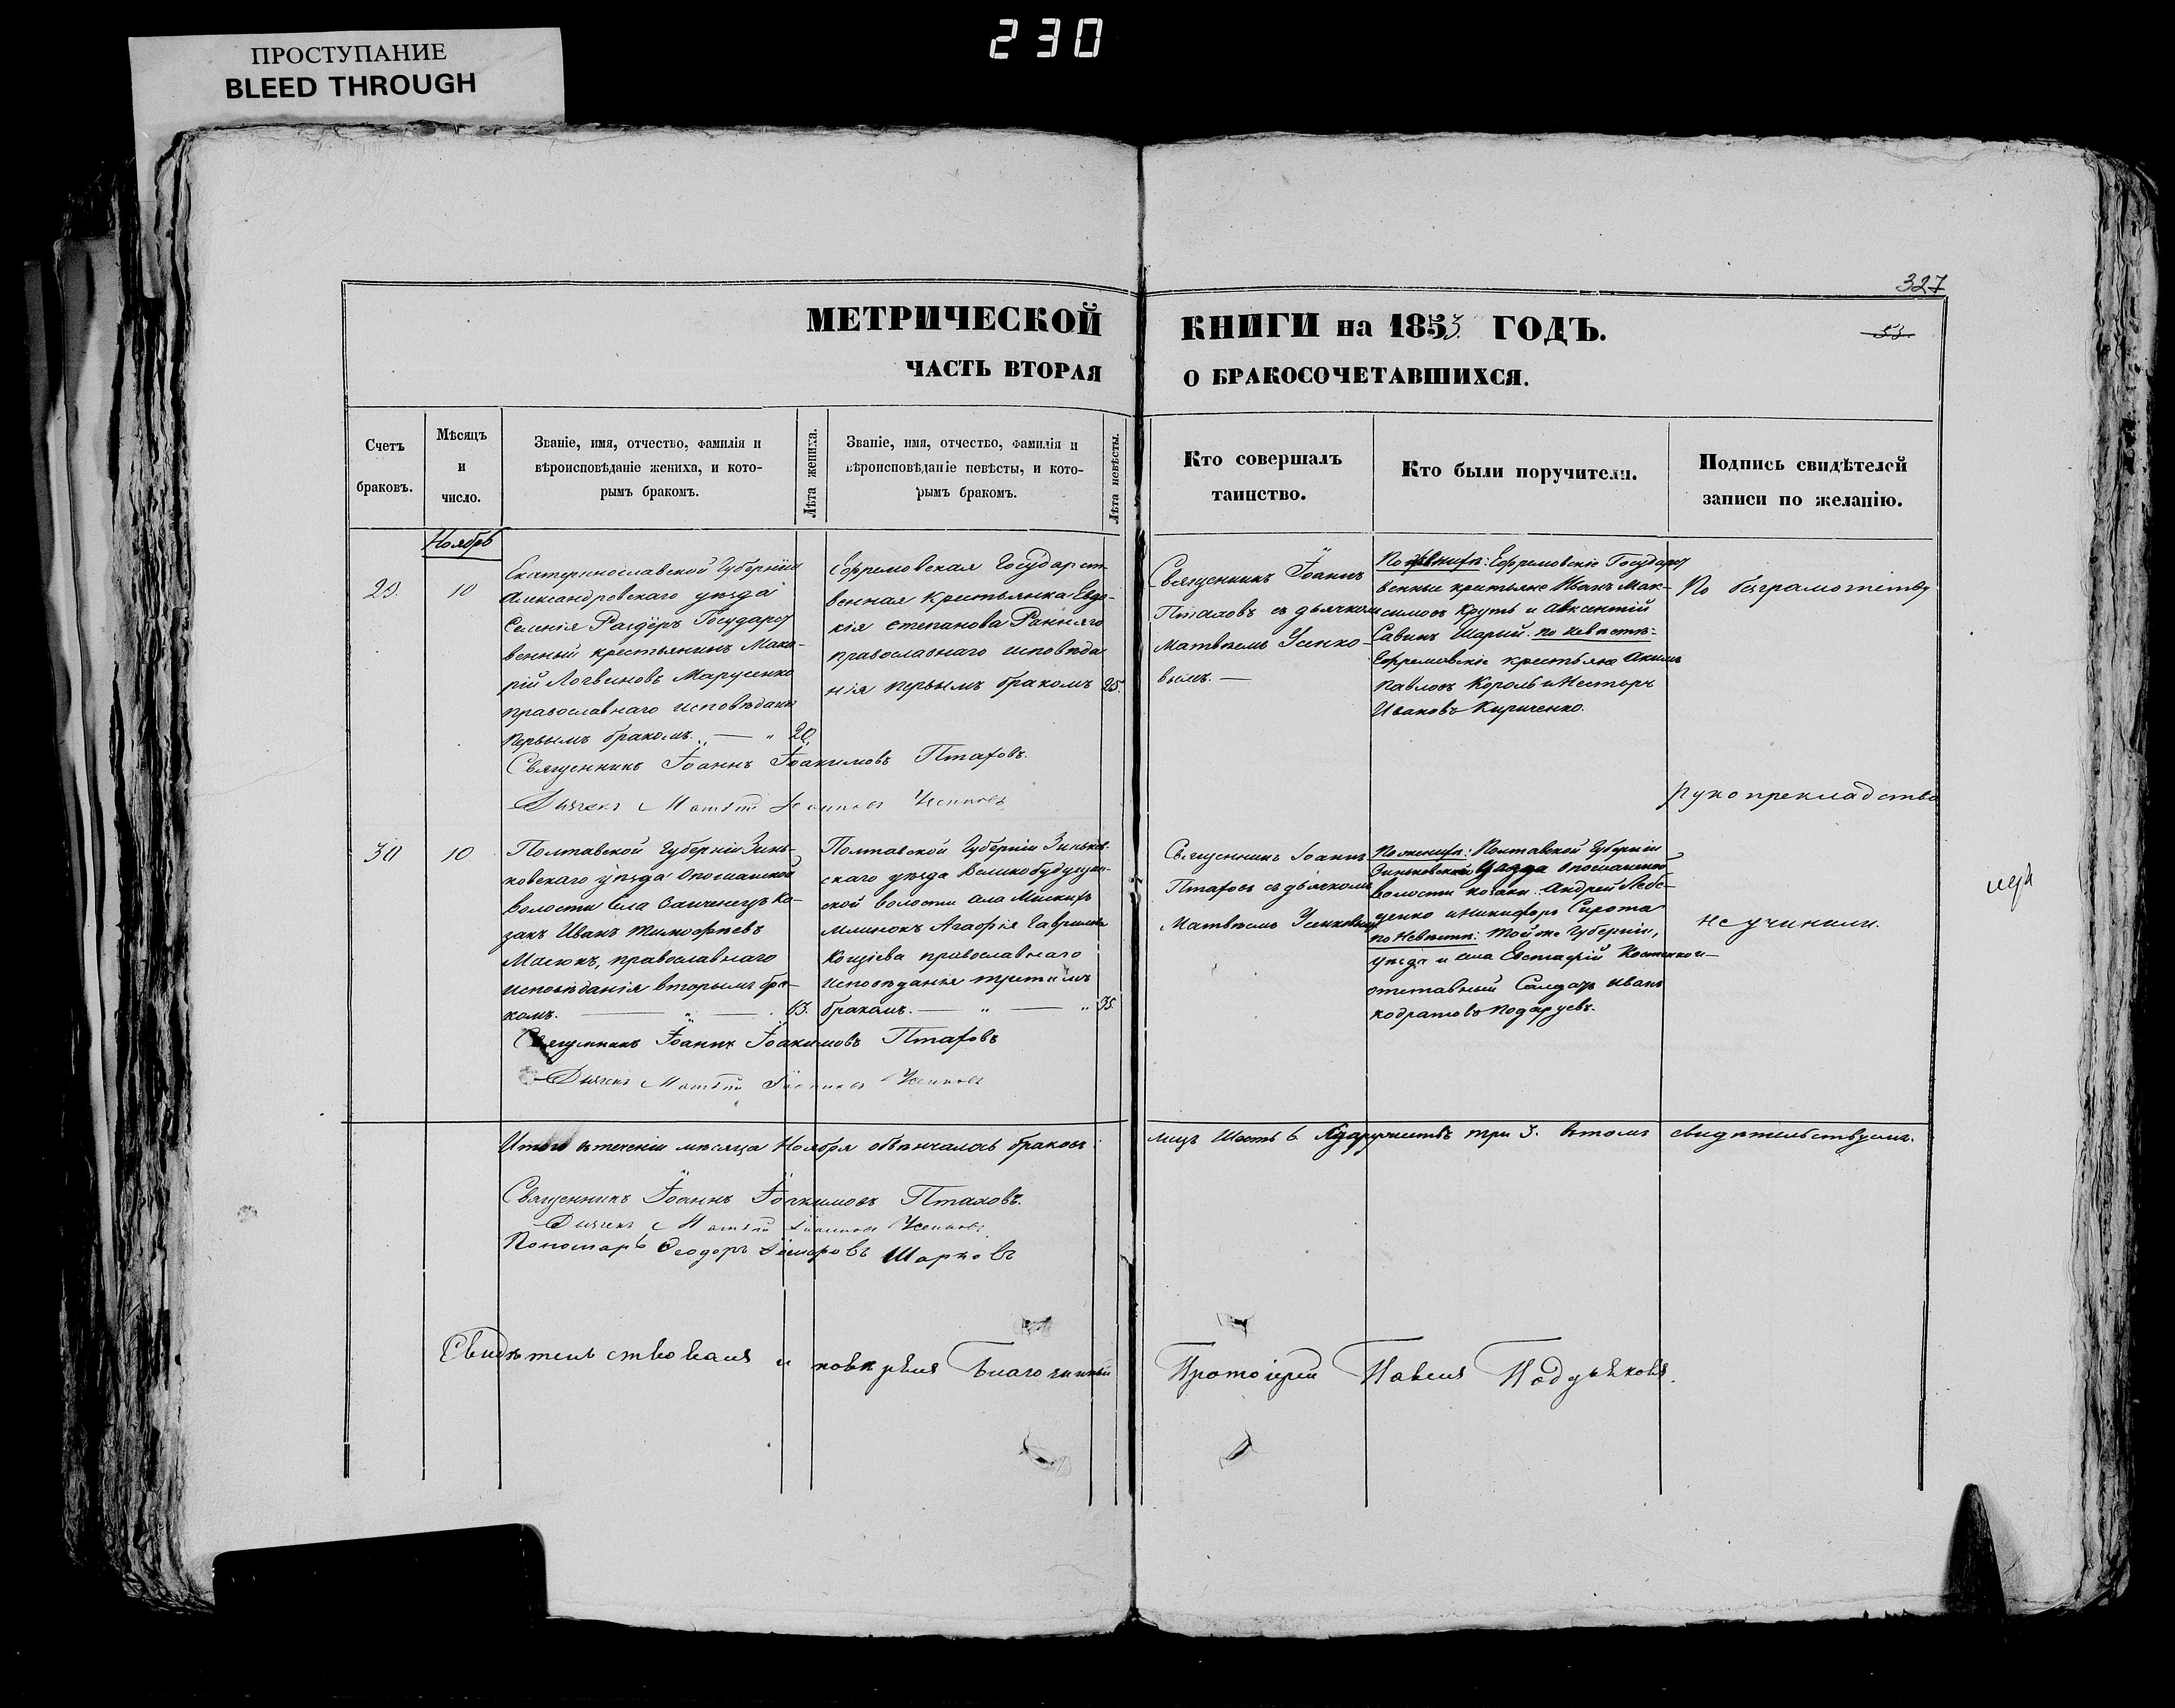 230
ПРОСТУПАНИЕ
BLEED THROUGH
327
МЕТРИЧЕСКОЙ КНИГИ на 1853 ГОДЪ.
53.
ЧАСТЬ ВТОРАЯ О БРАКОСОЧЕТАВШИХСЯ.
Счетъ
браковъ.
Мѣсяцъ
и
число.
Званіе, имя, отчество, фамилія и
вѣроисповѣданіе жениха, и кото-
рымъ бракомъ.
Лѣта жениха.
Званіе, имя, отчество, фамилія и
вѣроисповѣданіе невѣсты, и кото-
рымъ бракомъ.
Лѣта невѣсты.
Кто совершалъ
таинство.
Кто были поручители.
Подпись свидѣтелей
записи по желанію.
Ноябрь
29. 10
Екатеринославской Губерніи
Александровскаго уѣзда
Селенія Раздеръ Государст
венный крестьянинъ Мака-
рій Логвиновъ Марусенко
православнаго исповѣданія
первымъ бракомъ. — " 20.
Ефремовская Государст
венная крестьянка Евдо-
кія Степанова Ранняго
православнаго исповѣда
нія первымъ бракомъ 25.
Священникъ Іоаннъ
Птаховъ съ дьячкомъ
Матвѣемъ Усико-
вымъ. —
По женихѣ: Ефремовскіе Государст
венные крестьяне Иванъ Мак-
симовъ Круть и Авксентій
Савинъ Шарый. по невѣстѣ:
Ефремовскіе крестьяне Акимъ
Павловъ Король и Несторъ
Ивановъ Кириченко.
По безграмотству
Священникъ Іоаннъ Іоакимовъ Птаховъ.
Дьячекъ Матвѣй Іоанновъ Усиковъ
рукоприкладства
30 10
Полтавской Губерніи Зинь-
ковскаго уѣзда Опошанской
волости села Заиченецъ Ко-
закъ Иванъ Тимофѣевъ
Масюкъ, православнаго
исповѣданія вторымъ бра-
комъ. — " — .
Полтавской Губерніи Зиньков
скаго уѣзда Великобудущан-
ской волости села Мискихъ
млинокъ Агафія Гаврилова
православнаго
исповѣданія третимъ
бракомъ. — " — " 35.
Священникъ Іоаннъ
Птаховъ съ дьячкомъ
Матвѣемъ Усиковымъ
По женихѣ: Полтавской Губерніи
Зиньковскаго Уѣзда Опошанской
волости козаки Андрей Лебе-
денко и Никифоръ Сирота
по невѣстѣ: той же Губерніи,
уѣзда и села Евстафій
отставный Солдатъ Иванъ
Кодратовъ Подаруевъ.
не учинили.
Священникъ Іоаннъ Іоакимовъ Птаховъ
Дьячекъ Матвѣй Іоанновъ Усиковъ
Итого въ теченіи мѣсяца Ноября обвѣнчалось браковъ: лицъ Шесть 6. три 3. въ томъ свидѣтельствуемъ.
Священникъ Іоаннъ Іоакимовъ Птаховъ.
Дьячекъ Матвѣй Іоанновъ Усиковъ
Пономарь Феодоръ Шарковъ
Свидѣтельствовалъ и повѣрялъ Благочинный Протоіерей Павелъ Подъяковъ.